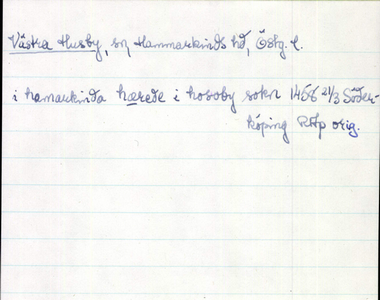 Västra Husby, sn, Hammarkinds hd, Östg. l.
i hamarkinda hærede i hosoby sokn 1458 21/3 Söder-
köping RAp orig.